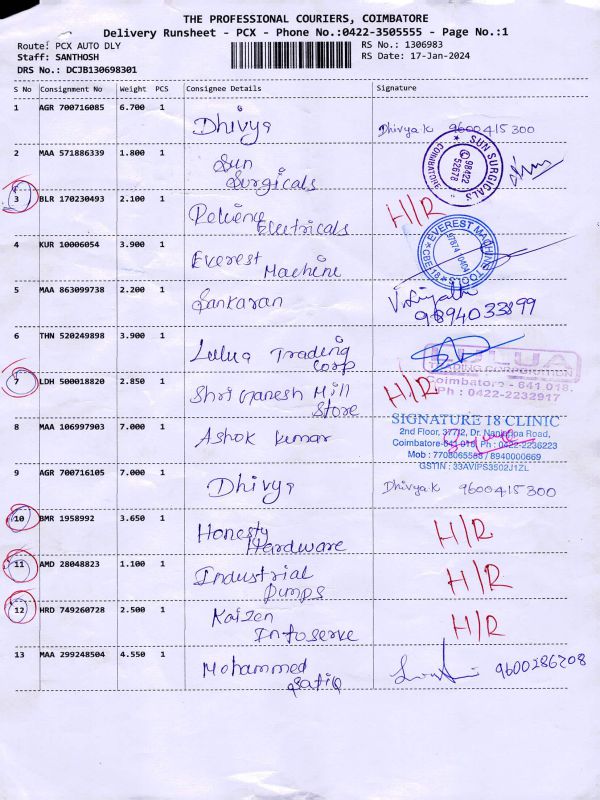 THE PROFESSIONAL COURIERS, COIMBATORE
Delivery Runsheet - PCX - Phone No.:0422-3505555 - Page No.:1
Route: PCX AUTO DLY
RS No.: 1306983
Staff: SANTHOSH
RS Date: 17-Jan-2024
DRS No.: DCJB130698301
S No Consignment No Weight PCS Consignee Details Signature
1 AGR 700716085 6.700 1 Dhivya Dhivya K 9600415300
2 MAA 571886339 1.800 1 Sun
Surgicals
SUN SURGICALS
98422
52678
COIMBATORE
3 BLR 170230493 2.100 1 Reliene
Electricals
H/R
4 KUR 10006054 3.900 1 Everest
Machine
EVEREST MACHINE TOOLS
97874
CBE-18
5 MAA 863099738 2.200 1 Sankaran
9894033899
6 THN 520249898 3.900 1 Lulua Trading
Corp
LULUA
TRADING CORPORATION
Coimbatore - 641 018.
Ph : 0422-2232917
7 LDH 500018820 2.850 1 Shri Ganesh Mill
Store
H/R
8 MAA 106997903 7.000 1 Ashok Kumar
SIGNATURE 18 CLINIC
2nd Floor, 377/2, Dr. Nanjappa Road,
Coimbatore-641 018, Ph : 0422-2236223
Mob : 7708065588 / 8940000669
GSTIN : 33AVIPS3502J1ZL
9 AGR 700716105 7.000 1 Dhivya Dhivya K 9600415300
10 BMR 1958992 3.650 1 Honesty
Hardware
H/R
11 AMD 28048823 1.100 1 Industrial
Pumps
H/R
12 HRD 749260728 2.500 1 Kaizen
Infoserve
H/R
13 MAA 299248504 4.550 1 Mohammed
Safiq
9600286208